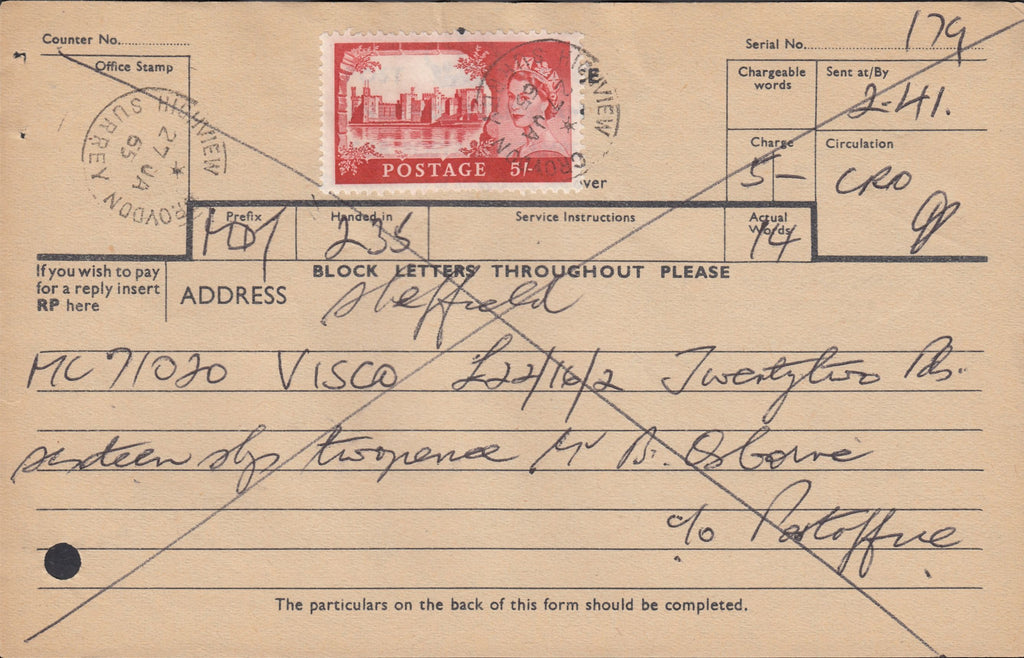 Counter No.
Office Stamp
HIGHVIEW
27 JA
65
CROYDON SURREY
POSTAGE 5/-
HIGHVIEW
27 JA
65
CROYDON
E
ver
Serial No. 179
Chargeable words
Sent at/By
2-41.
Charge
5-
Circulation
CRO
Prefix
Handed in
235
Service Instructions
Actual Words
14
If you wish to pay
for a reply insert
RP here
BLOCK LETTERS THROUGHOUT PLEASE
ADDRESS
Sheffield
MC 71020 VISCO £22/16/2 Twentytwo Pds.
sixteen shgs twopence Mr B. Osborne
c/o Postoffice
The particulars on the back of this form should be completed.